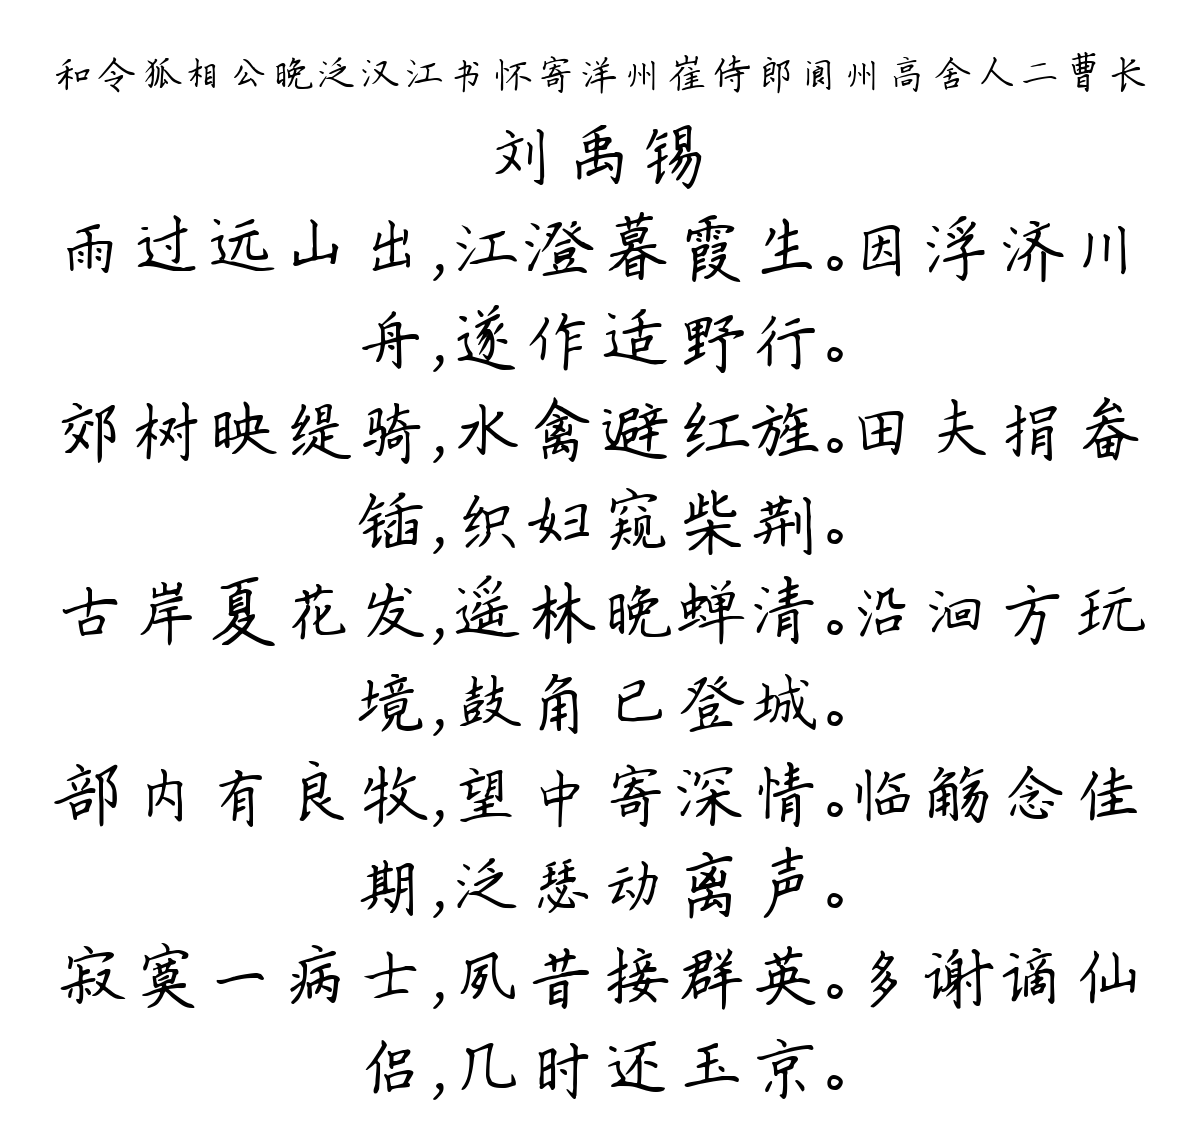 和令狐相公晚泛汉江书怀寄洋州崔侍郎阆州高舍人二曹长
刘禹锡
雨过远山出,江澄暮霞生。因浮济川
舟,遂作适野行。
郊树映缇骑,水禽避红旌。田夫捐畚
锸,织妇窥柴荆。
古岸夏花发,遥林晚蝉清。沿洄方玩
境,鼓角已登城。
部内有良牧,望中寄深情。临觞念佳
期,泛瑟动离声。
寂寞一病士,夙昔接群英。多谢谪仙
侣,几时还玉京。